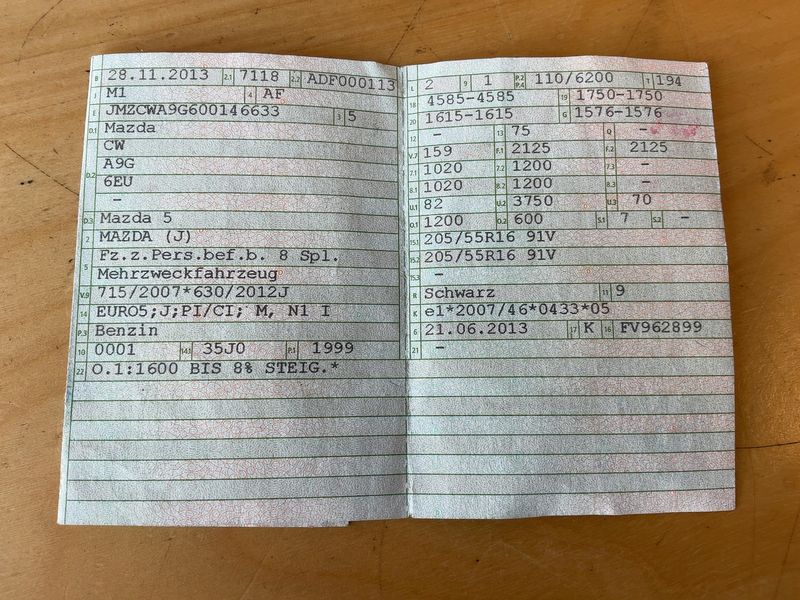 B 28.11.2013 2.1 7118 2.2 ADF000113
J M1 4 AF
E JMZCWA9G600146633 3 5
D.1 Mazda
D.2 CW
A9G
6EU
-
D.3 Mazda 5
2 MAZDA (J)
5 Fz.z.Pers.bef.b. 8 Spl.
Mehrzweckfahrzeug
V.9 715/2007*630/2012J
14 EURO5;J;PI/CI; M, N1 I
P.3 Benzin
10 0001 14.1 35J0 P.1 1999
22 O.1:1600 BIS 8% STEIG.*
L 2 9 1 P.2 P.4 110/6200 T 194
18 4585-4585 19 1750-1750
20 1615-1615 G 1576-1576
12 - 13 75 Q -
V.7 159 F.1 2125 F.2 2125
7.1 1020 7.2 1200 7.3 -
8.1 1020 8.2 1200 8.3 -
U.1 82 U.2 3750 U.3 70
O.1 1200 O.2 600 S.1 7 S.2 -
15.1 205/55R16 91V
15.2 205/55R16 91V
15.3 -
R Schwarz 11 9
K e1*2007/46*0433*05
6 21.06.2013 17 K 16 FV962899
21 -